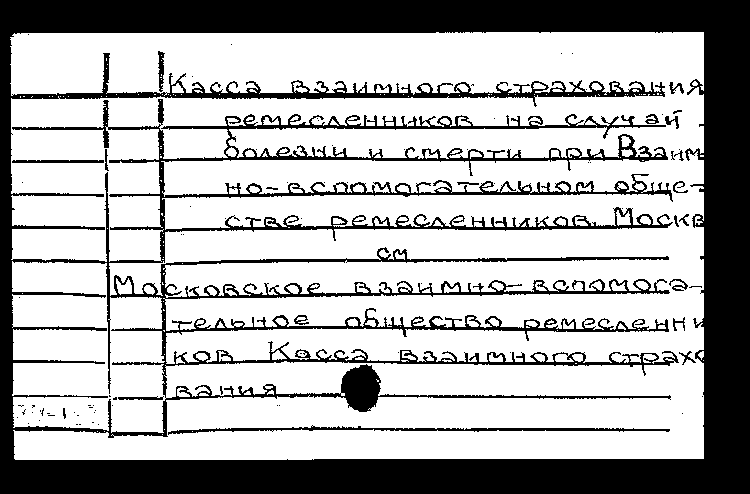 Касса взаимного страхования
ремесленников на случай
болезни и смерти при Взаим
но-вспомогательном обще-
стве ремесленников. Москв
см
Московское взаимно-вспомога-
тельное общество ремесленни
ков Касса взаимного страхо
вания